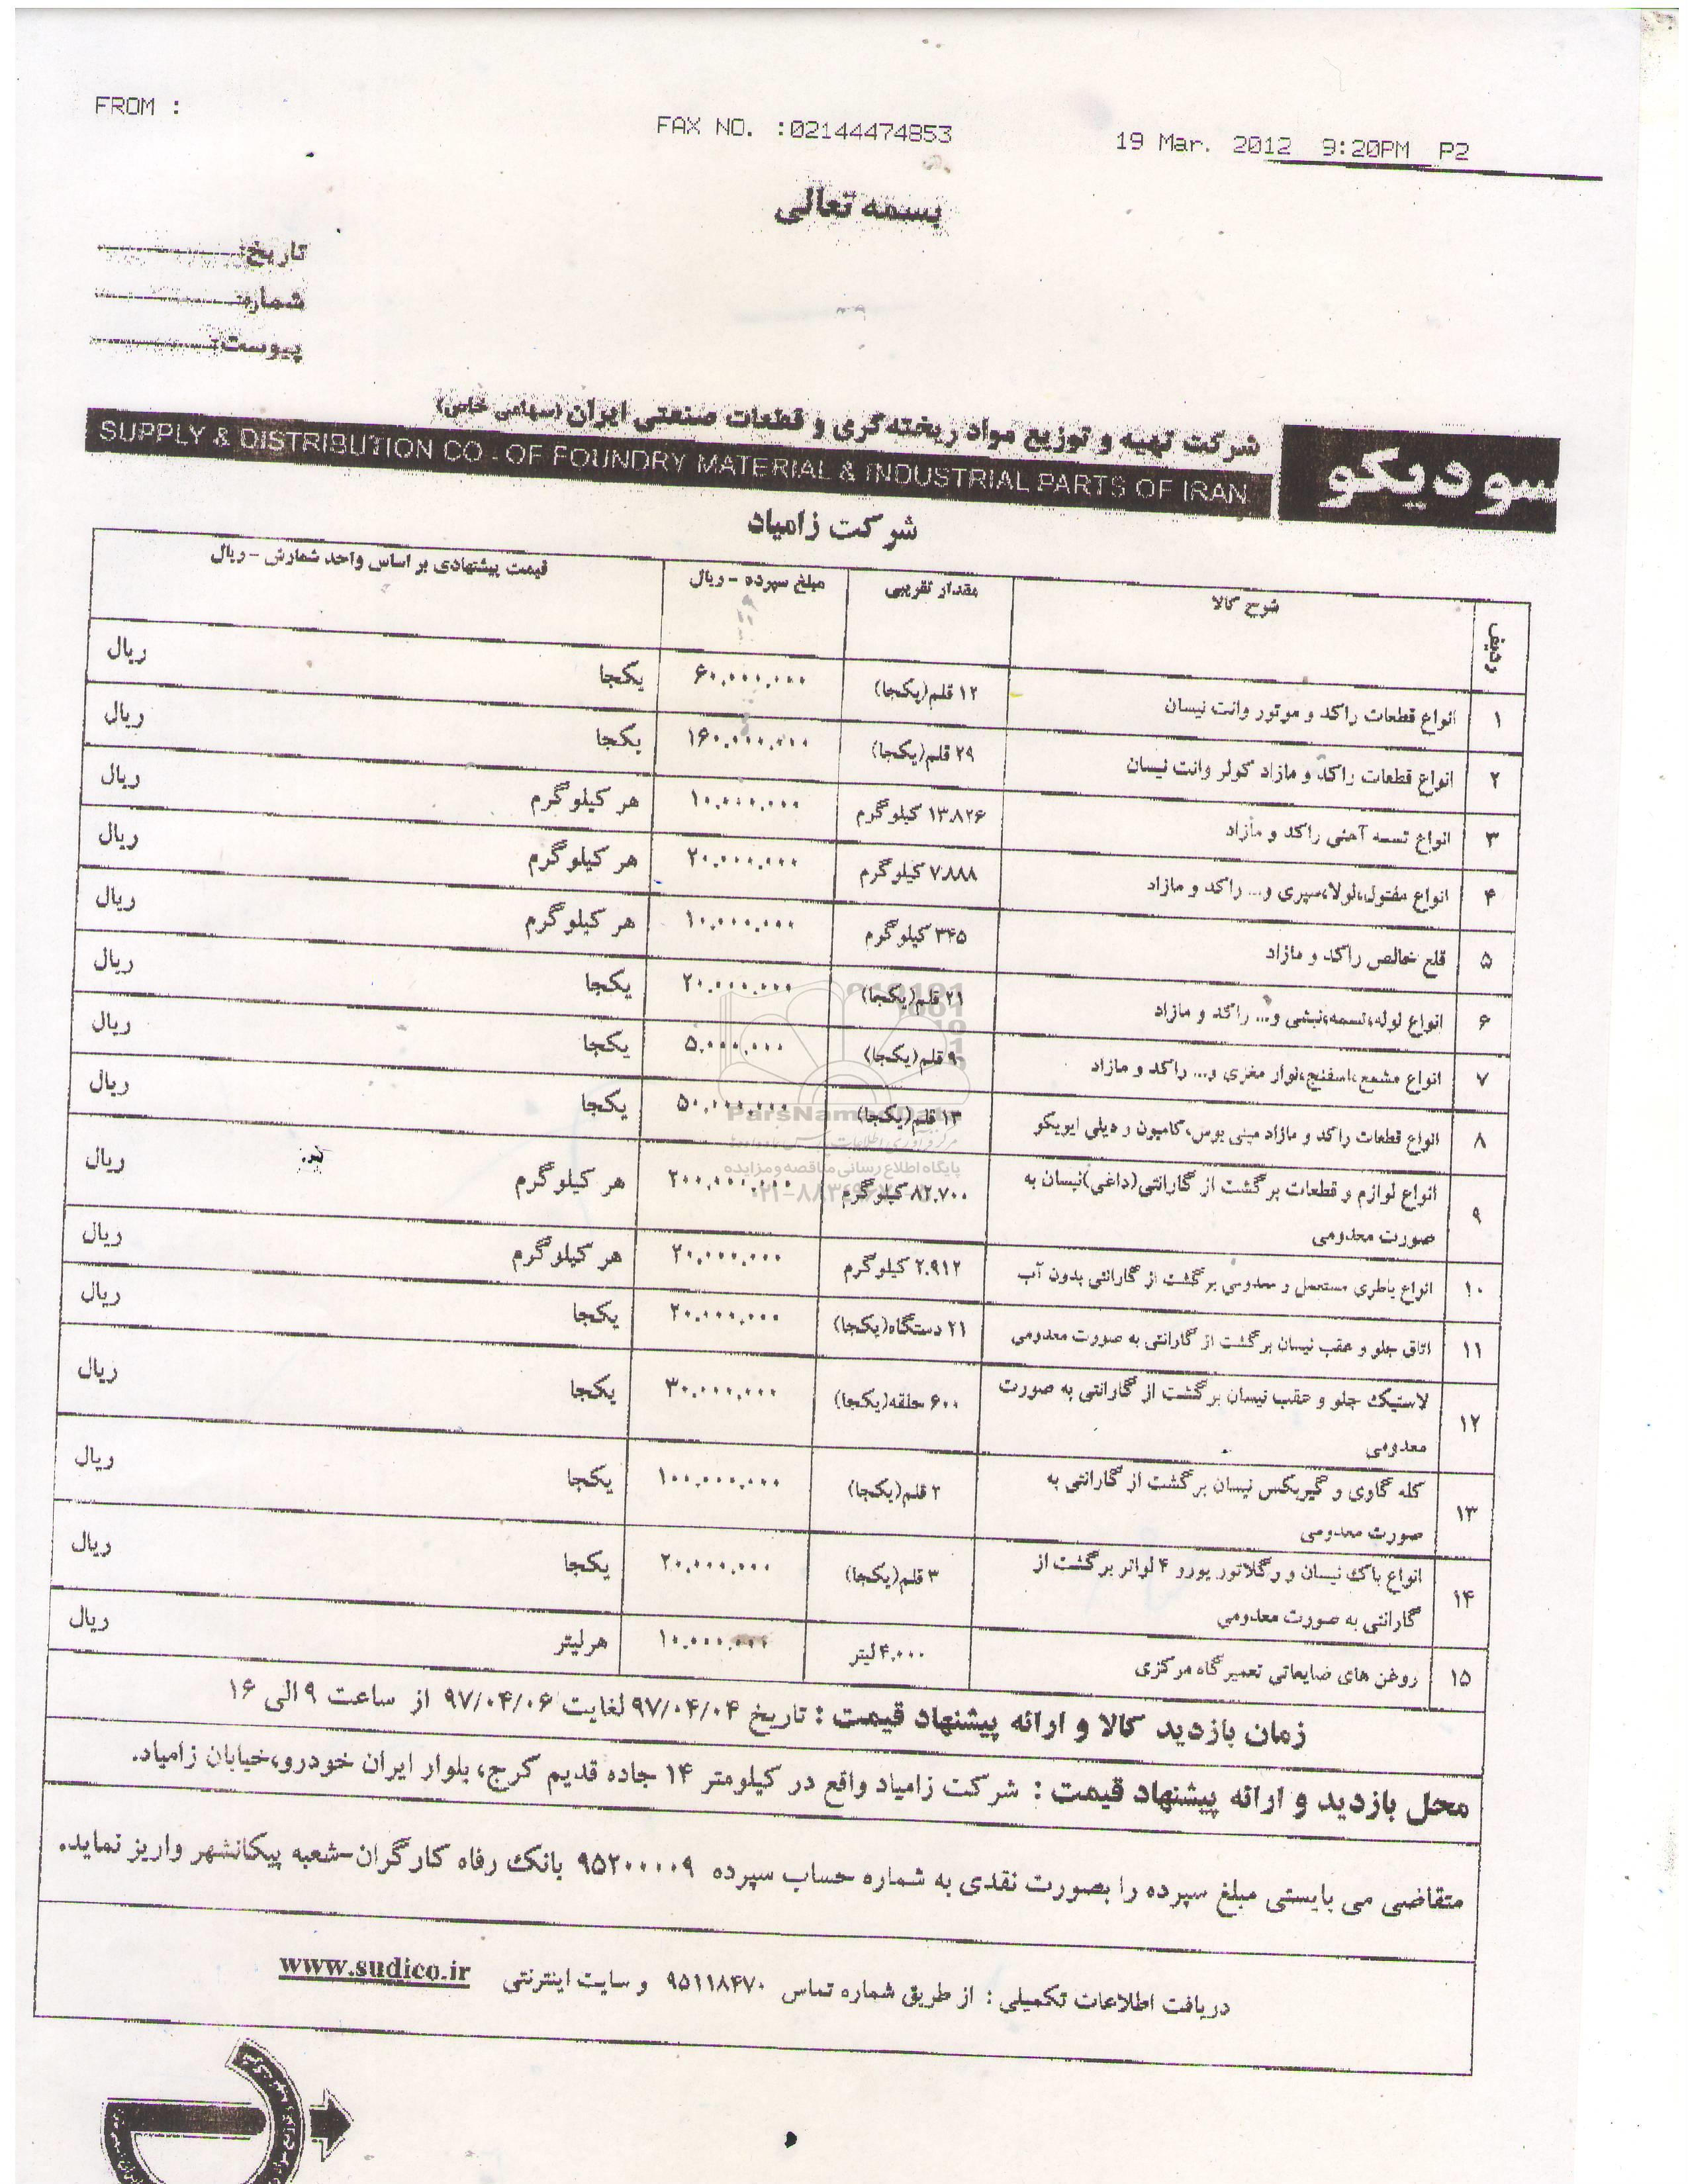 FROM :
FAX NO. :02144474853
19 Mar. 2012 9:20PM P2
بسمه تعالی
تاریخ:
شماره:
پیوست:
شرکت تهیه و توزیع مواد ریخته‌گری و قطعات صنعتی ایران (سهامی خاص)
SUPPLY & DISTRIBUTION CO . OF FOUNDRY MATERIAL & INDUSTRIAL PARTS OF IRAN
سودیکو
شرکت زامیاد
ردیف شرح کالا مقدار تقریبی مبلغ سپرده - ریال قیمت پیشنهادی بر اساس واحد شمارش - ریال
۱ انواع قطعات راکد و موتور وانت نیسان ۱۲ قلم(یکجا) ۶۰,۰۰۰,۰۰۰ یکجا ریال
۲ انواع قطعات راکد و مازاد کولر وانت نیسان ۲۹ قلم(یکجا) ۱۶۰,۰۰۰,۰۰۰ یکجا ریال
۳ انواع تسمه آهنی راکد و مازاد ۱۳.۸۲۶ کیلوگرم ۱۰,۰۰۰,۰۰۰ هر کیلوگرم ریال
۴ انواع مفتول،لولا،سپری و... راکد و مازاد ۷.۸۸۸ کیلوگرم ۲۰,۰۰۰,۰۰۰ هر کیلوگرم ریال
۵ قلع خالص راکد و مازاد ۳۴۵ کیلوگرم ۱۰,۰۰۰,۰۰۰ هر کیلوگرم ریال
۶ انواع لوله،تسمه،نبشی و... راکد و مازاد ۲۱ قلم(یکجا) ۲۰,۰۰۰,۰۰۰ یکجا ریال
۷ انواع مشمع،اسفنج،نوار مغزی و... راکد و مازاد ۹ قلم(یکجا) ۵,۰۰۰,۰۰۰ یکجا ریال
۸ انواع قطعات راکد و مازاد مینی بوس،کامیون و دیلی ایویکو ۱۳ قلم(یکجا) ۵۰,۰۰۰,۰۰۰ یکجا ریال
۹ انواع لوازم و قطعات برگشت از گارانتی(داغی)نیسان به ۸۲,۷۰۰ کیلوگرم ۲۰۰,۰۰۰,۰۰۰ هر کیلوگرم ریال
صورت معدومی
۱۰ انواع باطری مستعمل و معدومی برگشت از گارانتی بدون آب ۲.۹۱۲ کیلوگرم ۲۰,۰۰۰,۰۰۰ هر کیلوگرم ریال
۱۱ اتاق جلو و عقب نیسان برگشت از گارانتی به صورت معدومی ۲۱ دستگاه(یکجا) ۲۰,۰۰۰,۰۰۰ یکجا ریال
۱۲ لاستیک جلو و عقب نیسان برگشت از گارانتی به صورت ۶۰۰ حلقه(یکجا) ۳۰,۰۰۰,۰۰۰ یکجا ریال
معدومی
۱۳ کله گاوی و گیربکس نیسان برگشت از گارانتی به ۲ قلم(یکجا) ۱۰۰,۰۰۰,۰۰۰ یکجا ریال
صورت معدومی
۱۴ انواع باک نیسان و رگلاتور یورو ۴ لواتر برگشت از ۳ قلم(یکجا) ۲۰,۰۰۰,۰۰۰ یکجا ریال
گارانتی به صورت معدومی
۱۵ روغن های ضایعاتی تعمیرگاه مرکزی ۴.۰۰۰ لیتر ۱۰,۰۰۰,۰۰۰ هرلیتر ریال
زمان بازدید کالا و ارائه پیشنهاد قیمت : تاریخ ۹۷/۰۴/۰۴ لغایت ۹۷/۰۴/۰۶ از ساعت ۹ الی ۱۶
محل بازدید و ارائه پیشنهاد قیمت : شرکت زامیاد واقع در کیلومتر ۱۴ جاده قدیم کرج، بلوار ایران خودرو،خیابان زامیاد.
متقاضی می بایستی مبلغ سپرده را بصورت نقدی به شماره حساب سپرده ۹۵۲۰۰۰۰۹ بانک رفاه کارگران-شعبه پیکانشهر واریز نماید.
دریافت اطلاعات تکمیلی : از طریق شماره تماس ۹۵۱۱۸۴۷۰ و سایت اینترنتی www.sudico.ir
ParsNamadData
پایگاه اطلاع رسانی مناقصه و مزایده